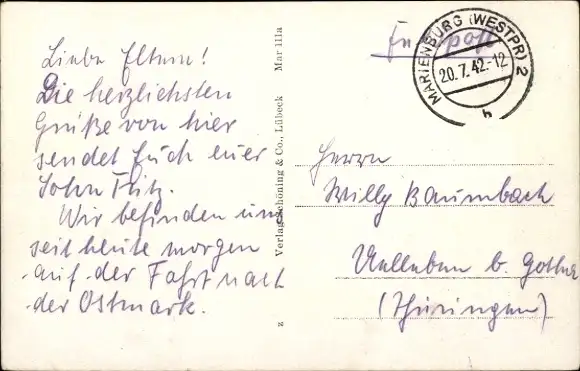 Liebe Eltern!
Die herzlichsten
Grüße von hier
sendet Euch euer
Sohn Fritz.
Wir befinden uns
seit heute morgen
auf der Fahrt nach
der Ostmark.
Verlag Schöning & Co., Lübeck Mar 111a
Feldpost
MARIENBURG (WESTPR) 2
20.7.42.-12
b
Herrn
Willy Baumbach
Uelleben b. Gotha
(Thüringen)